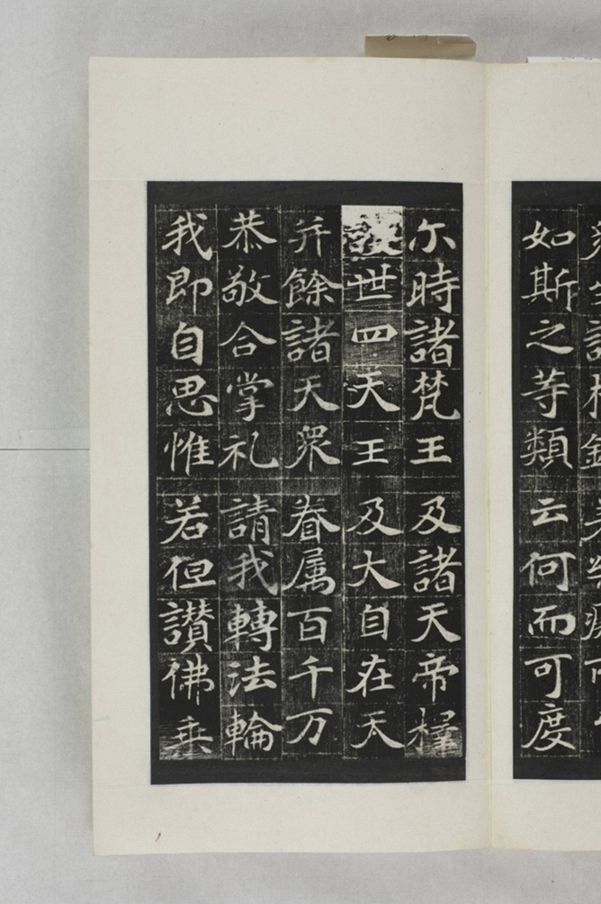 如斯之等類云何而可度
尒時諸梵王及諸天帝釋
護世四天王及大自在天
并餘諸天衆眷属百千万
恭敬合掌礼請我轉法輪
我即自思惟若但讃佛乗